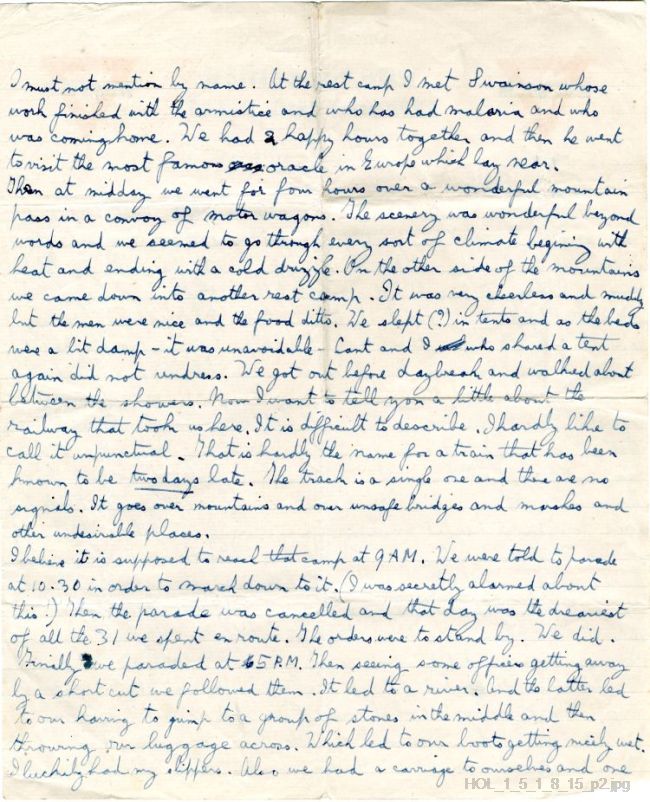 I must not mention by name. At the rest camp I met Swainson whose
work finished with the armistice and who has had malaria and who
was coming home. We had 2 happy hours together and then he went
to visit the most famous oracle in Europe which lay near.
Then at midday we went for four hours over a wonderful mountain
pass in a convoy of motor wagons. The scenery was wonderful beyond
words and we seemed to go through every sort of climate begining with
heat and ending with a cold drizzle. On the other side of the mountains
we came down into another rest camp. It was very cheerless and muddy
but the men were nice and the food ditto. We slept (?) in tents and as the beds
were a bit damp - it was unavoidable - Cant and I who shared a tent
again did not undress. We got out before daybreak and walked about
between the showers. Now I want to tell you a little about the
railway that took us here. It is difficult to describe. I hardly like to
call it unpunctual. That is hardly the name for a train that has been
known to be two days late. The track is a single one and there are no
signals. It goes over mountains and over unsafe bridges and marshes and
other undesirable places.
I believe it is supposed to reach that camp at 9 AM. We were told to parade
at 10.30 in order to march down to it. (I was secretly alarmed about
this!) Then the parade was cancelled and that day was the dreariest
of all the 31 we spent en route. The orders were to stand by. We did.
Finally we paraded at 5 P.M. Then seeing some officers getting away
by a short cut we followed them. It led to a river. And the latter led
to our having to jump to a group of stones in the middle and then
throwing our luggage across. Which led to our boots getting nicely wet.
I luckily had my slippers. Also we had a carriage to ourselves and one
HOL_1_5_1_8_15_p2.jpg